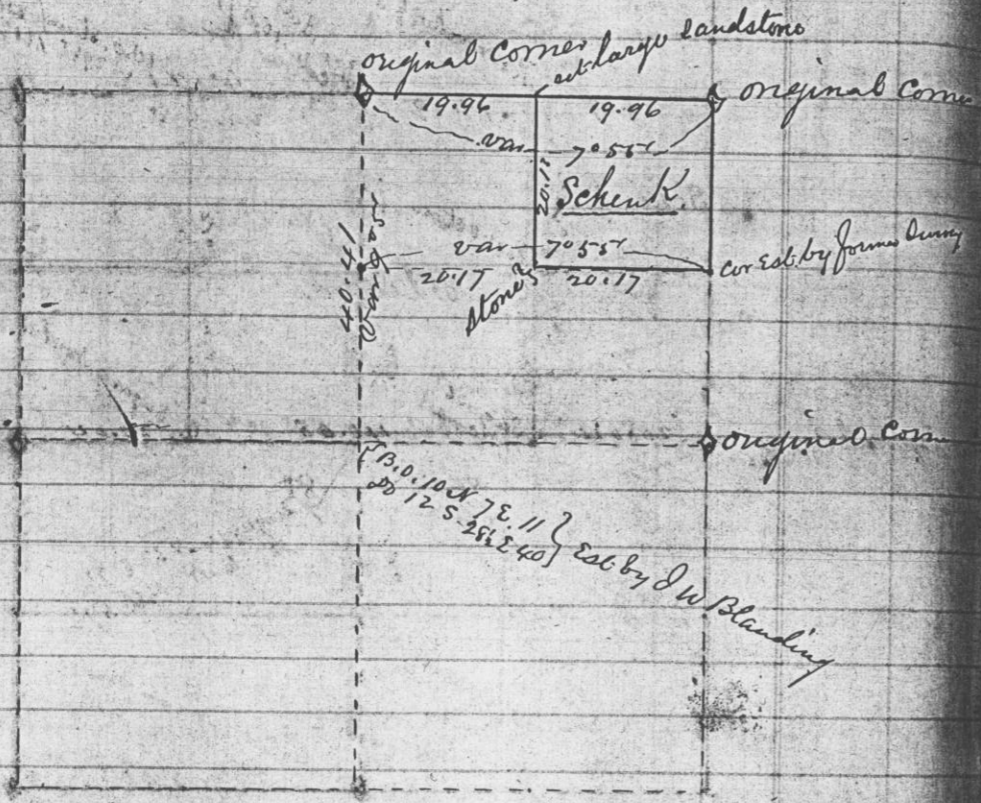 original Corner
set large sandstone
original Corne
19.96
19.96
var 7° 55'
20.11
Schenk
var 7° 55'
40.41
20.17
Stone
20.17
cor Est. by former Survy
original Corne
B.O. 10 N 7 E. 11
12 S 28½ E 40
Est. by J W Blanding